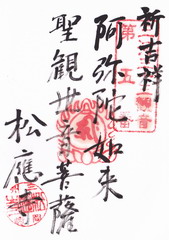 新吉祥
第五番
阿弥陀如来
聖観世音菩薩
松應寺